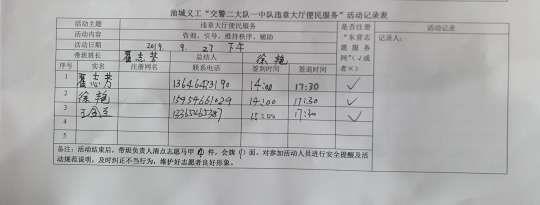 油城义工“交警二大队一中队违章大厅便民服务”活动记录表
活动主题 违章大厅便民服务 是否注册“东营志愿服务网”(√或者×) 活动记录
活动内容 咨询、引导、维持秩序、辅助 记录人:
活动日期 2019. 9. 27 下午
带班班长 翟志芳 总结人 徐艳
序号 实名 注册网名 联系电话 签到时间 签退时间
1 翟志芳 14:00 17:30 √
2 徐艳 15954661029 14:00 17:30 √
3 17:30 √
4
5
备注:活动结束后,带班负责人清点志愿马甲 件,会牌 面,对参加活动人员进行安全提醒及活
动规范说明,及时纠正不当行为,维护好志愿者良好形象。